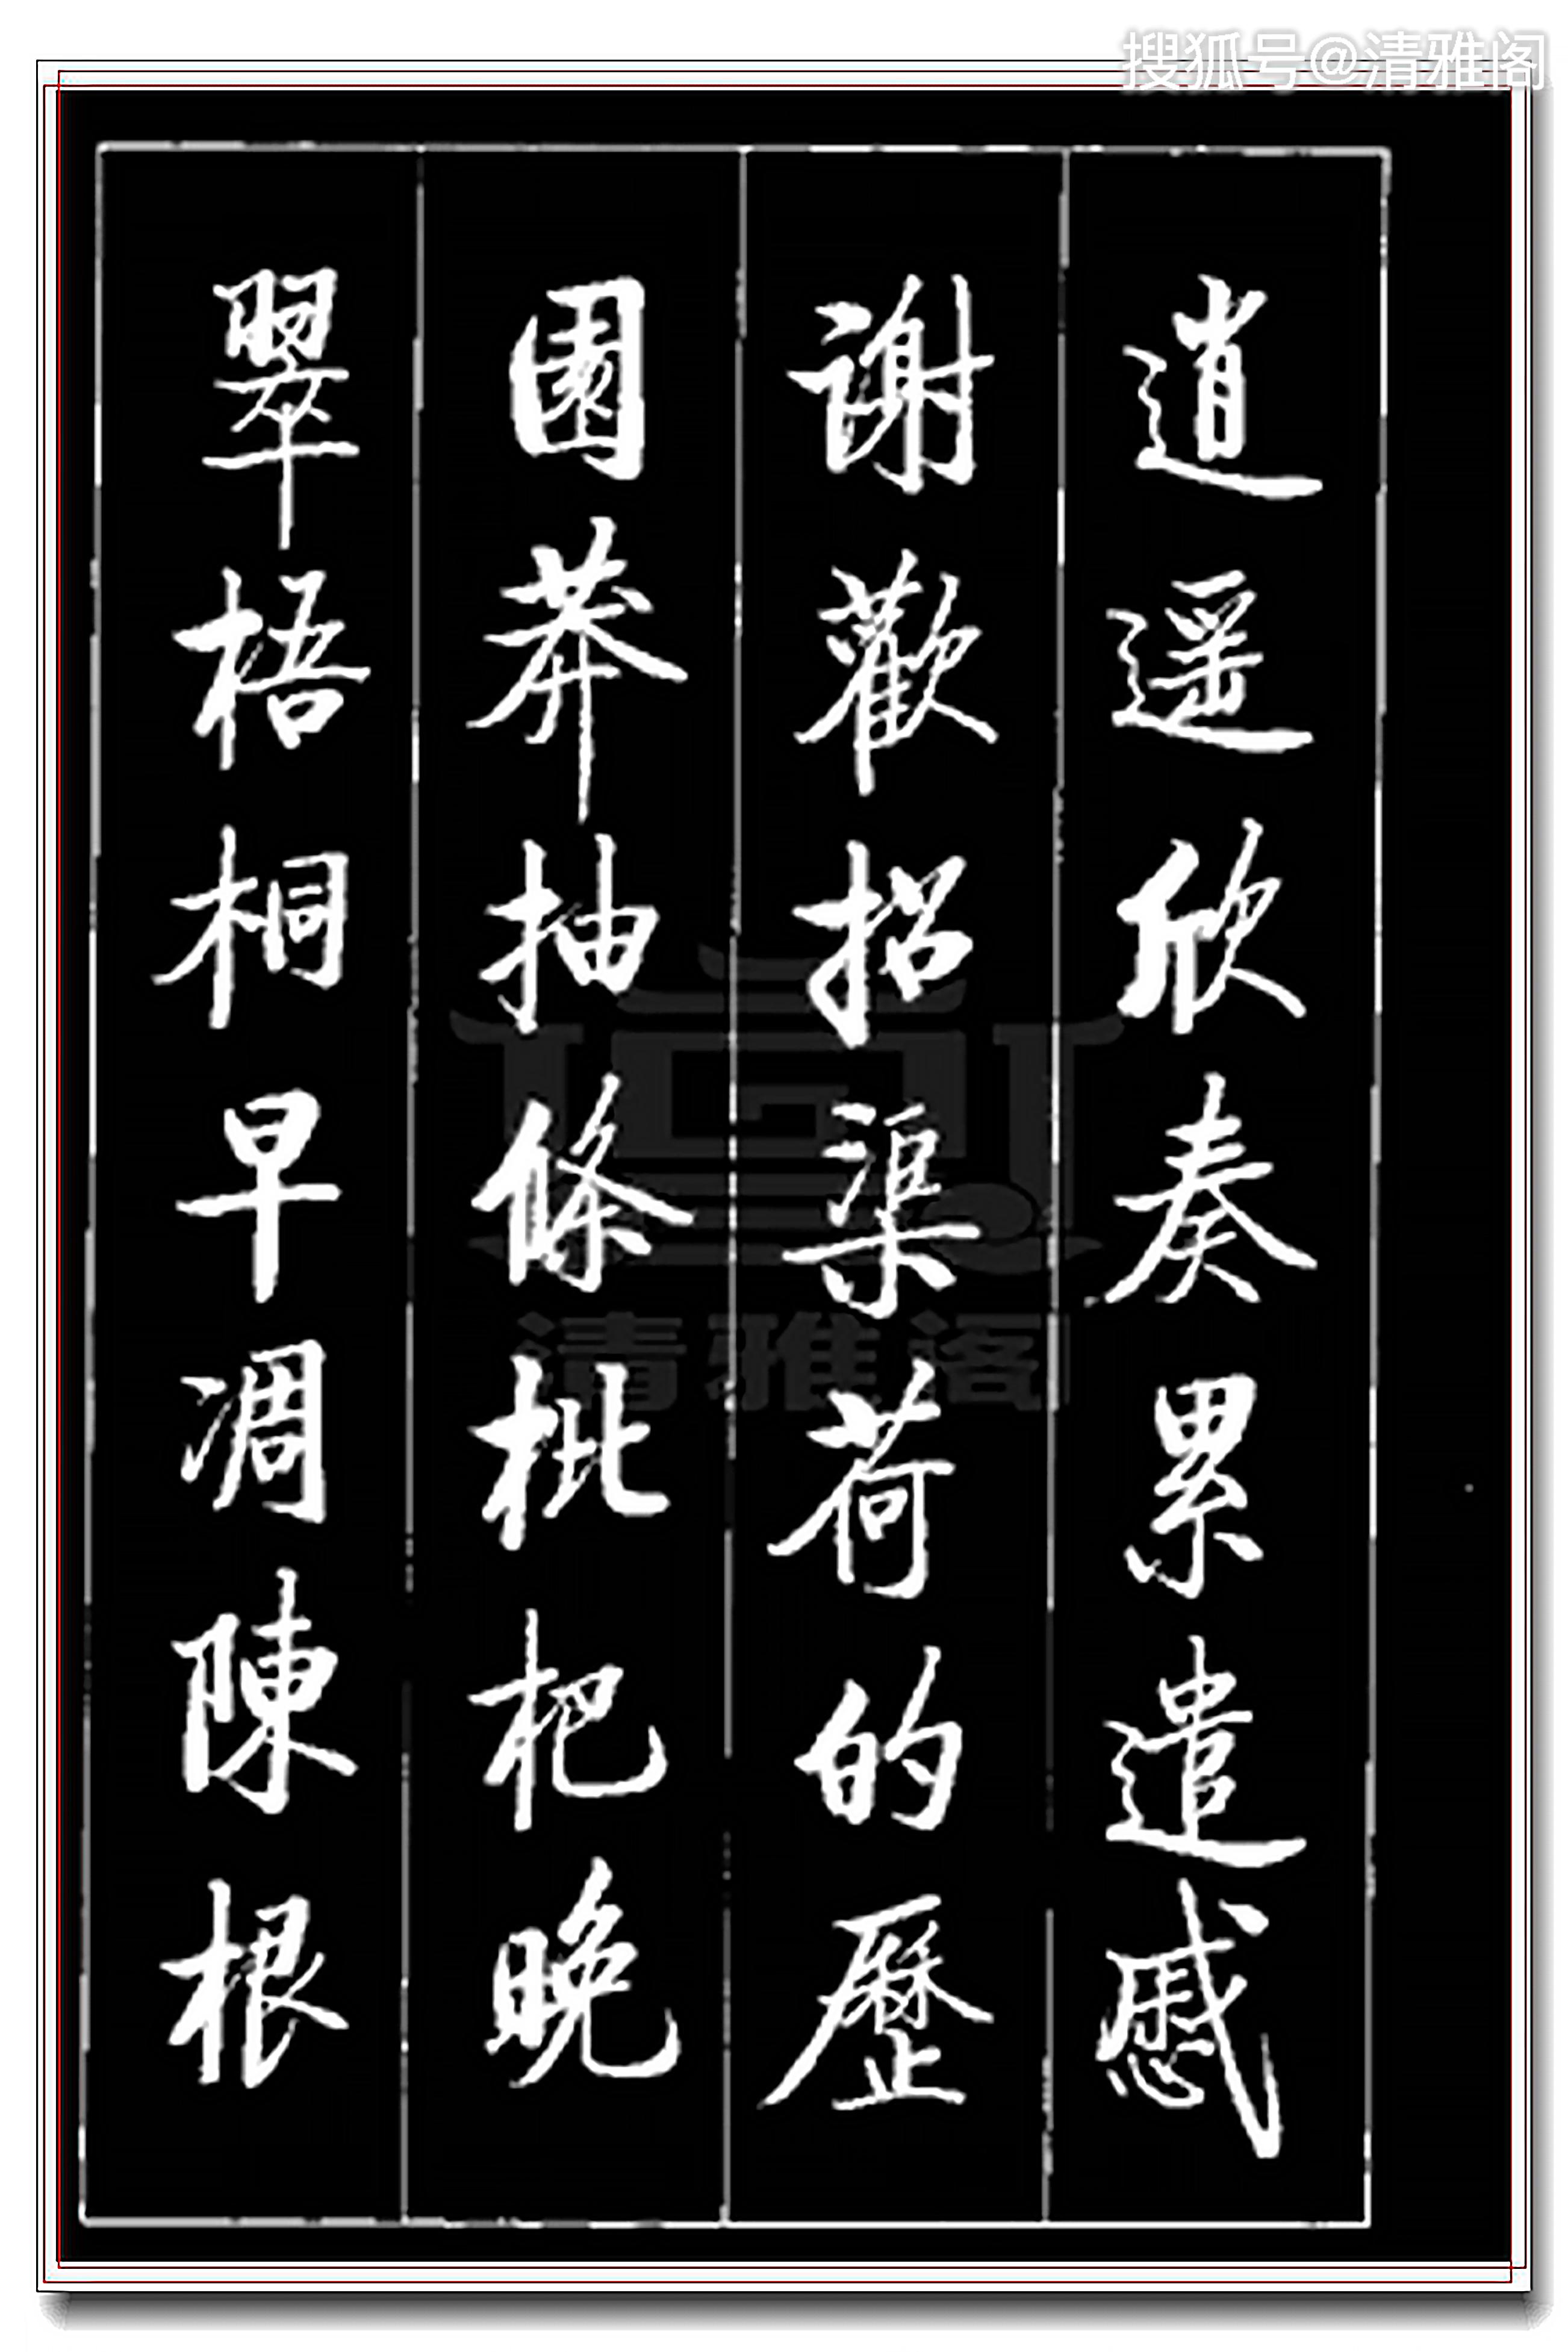 搜狐号@清雅阁
逍遥欣奏累遣慼
謝歡招渠荷的歷
園莽抽條枇杷晚
翠梧桐早凋陳根
清雅阁